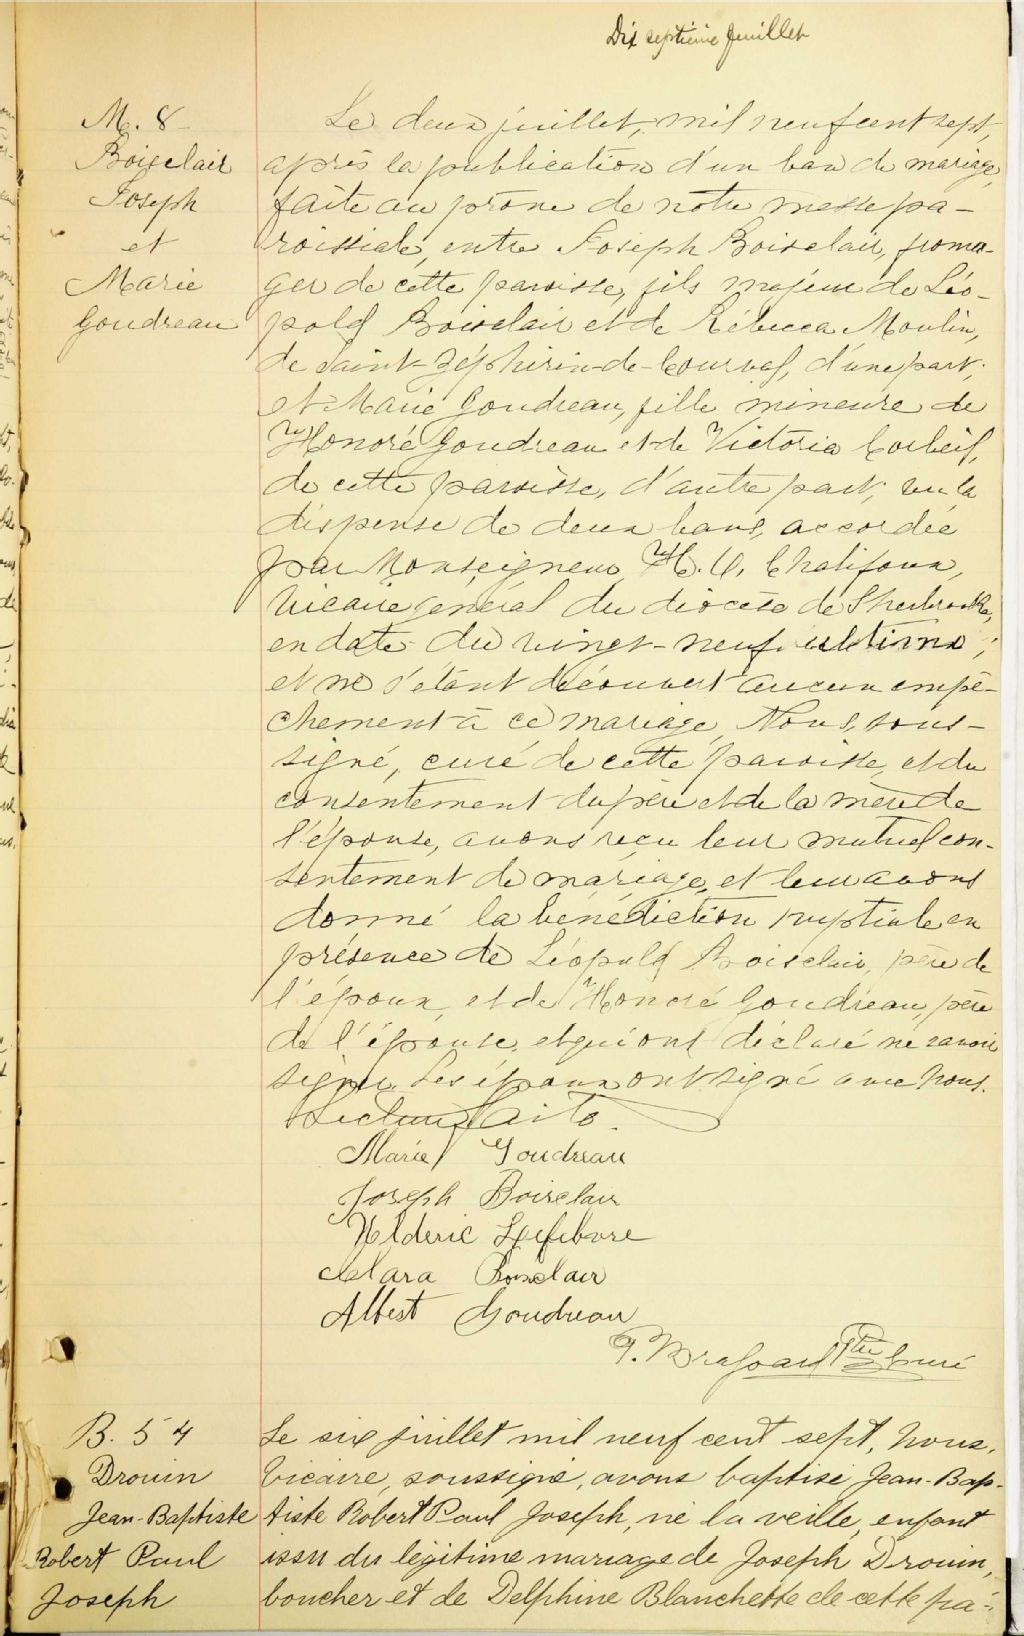 Dix septième feuillet
M. 8
Boisclair
Joseph
et
Marie
Goudreau
Le deux juillet, mil neuf cent sept,
après la publication d'un ban de mariage,
faite au prône de notre messe pa-
roissiale, entre Joseph Boisclair, froma-
ger de cette paroisse, fils majeur de Léo-
pold Boisclair et de Rébecca Moulin,
de Saint-Zéphirin-de-Courval, d'une part;
et Marie Goudreau, fille mineure de
Honoré Goudreau et de Victoria Corbeil,
de cette paroisse, d'autre part; vu la
dispense de deux bans, accordée
par Monseigneur H. O. Chalifoux,
Vicaire général du diocèse de Sherbrooke,
en date du vingt-neuf ultimo;
et ne s'étant découvert aucun empê-
chement à ce mariage, Nous, sous-
signé, curé de cette paroisse, et du
consentement du père et de la mère de
l'épouse, avons reçu leur mutuel con-
sentement de mariage, et leur avons
donné la bénédiction nuptiale en
présence de Léopold Boisclair, père de
l'époux, et de Honoré Goudreau, père
de l'épouse, et qui ont déclaré ne savoir
signer. Les époux ont signé avec nous.
Lecture faite.
Marie Goudreau
Joseph Boisclair
Hldéric Lefebvre
Clara Boisclair
Albert Goudreau
P. Brassard Ptre Curé
B. 54
Drouin
Jean-Baptiste
Robert Paul
Joseph
Le six juillet mil neuf cent sept, nous,
Vicaire, soussigné, avons baptisé Jean-Bap-
tiste Robert Paul Joseph, né la veille, enfant
issu du légitime mariage de Joseph Drouin,
boucher et de Delphine Blanchette de cette pa-